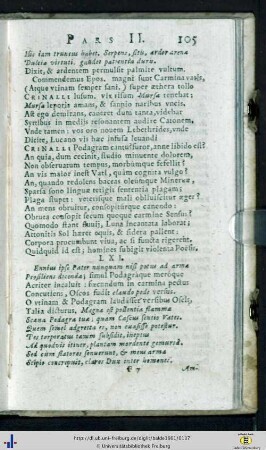 PARS II. 105
Hic iam truncus habet. Serpens, sitis, ardor arenæ
Dulcia virtuti, gaudet patientia duris.
Dixit, & ardentem permulsit palmite vultum.
Commendemus Epos. magni sunt Carmina vatis,
(Atque utinam semper sani.) super æthera tollo
CRINALLI lusum. vix illum Mursa
Mursa lepotis amans, & sannio naribus uncis.
At ego demiror, caneret dum tanta, videbar
Syrtibus in mediis resonantem audire Catonem,
Unde tamen: vos oro noveni Lebethrides, unde
Dicite, Lucano vis hæc infusa leuandi
CRINALLI Podagram cantussuror, anne libido est?
An quia, dum cecinit, studio minuente dolorem,
Non observatum tempus, morbumque fefellit?
An vis maior inest Vati, quàm cognita vulgo?
An, quando redolent baceas oleumque Minervæ,
Sparsa sono linguæ retigit sententia plagam:
Plaga stupet: veterisque mali obliviscitur æger?
An mens obruitur, consopiturque canendo:
Obruta consopit secum quoque carmine Sensus?
Quomodo stant fluvii, Luna incantata laborat;
Attonitis Sol hæret equis, & sidera pallent:
Corpora procumbunt viva, ac si functa rigerent.
Quidquid id est; humeros subigit violenta Poesis.
LXI.
Ennius ipse Pater nunquam nisi potus ad arma
Prosiliit dicenda; simul Podagraque meroque
Acriter incaluit: fricandum in carmina pectus
Concutiens, Oscos fudit claudo pede versus.
O utinam & Podagram laudisset versibus Oscis,
Talia dicturus. Magna est potentia flamma
Scava Podagra tua; quam Cascus sentio Vates.
Quem semel adgressa es, non causisse potestur.
Pes torperatus tauum subsidit, ineptus
Ad quodvis itiner, plantam mordente gemursâ.
Sed cum statores fouerunt, & mens arma
Scipio conripuit, claret Dux enter
G 7 Am-
http://dl.ub.uni-freiburg.de/diglit/balde1661/0137
© Universitätsbibliothek Freiburg